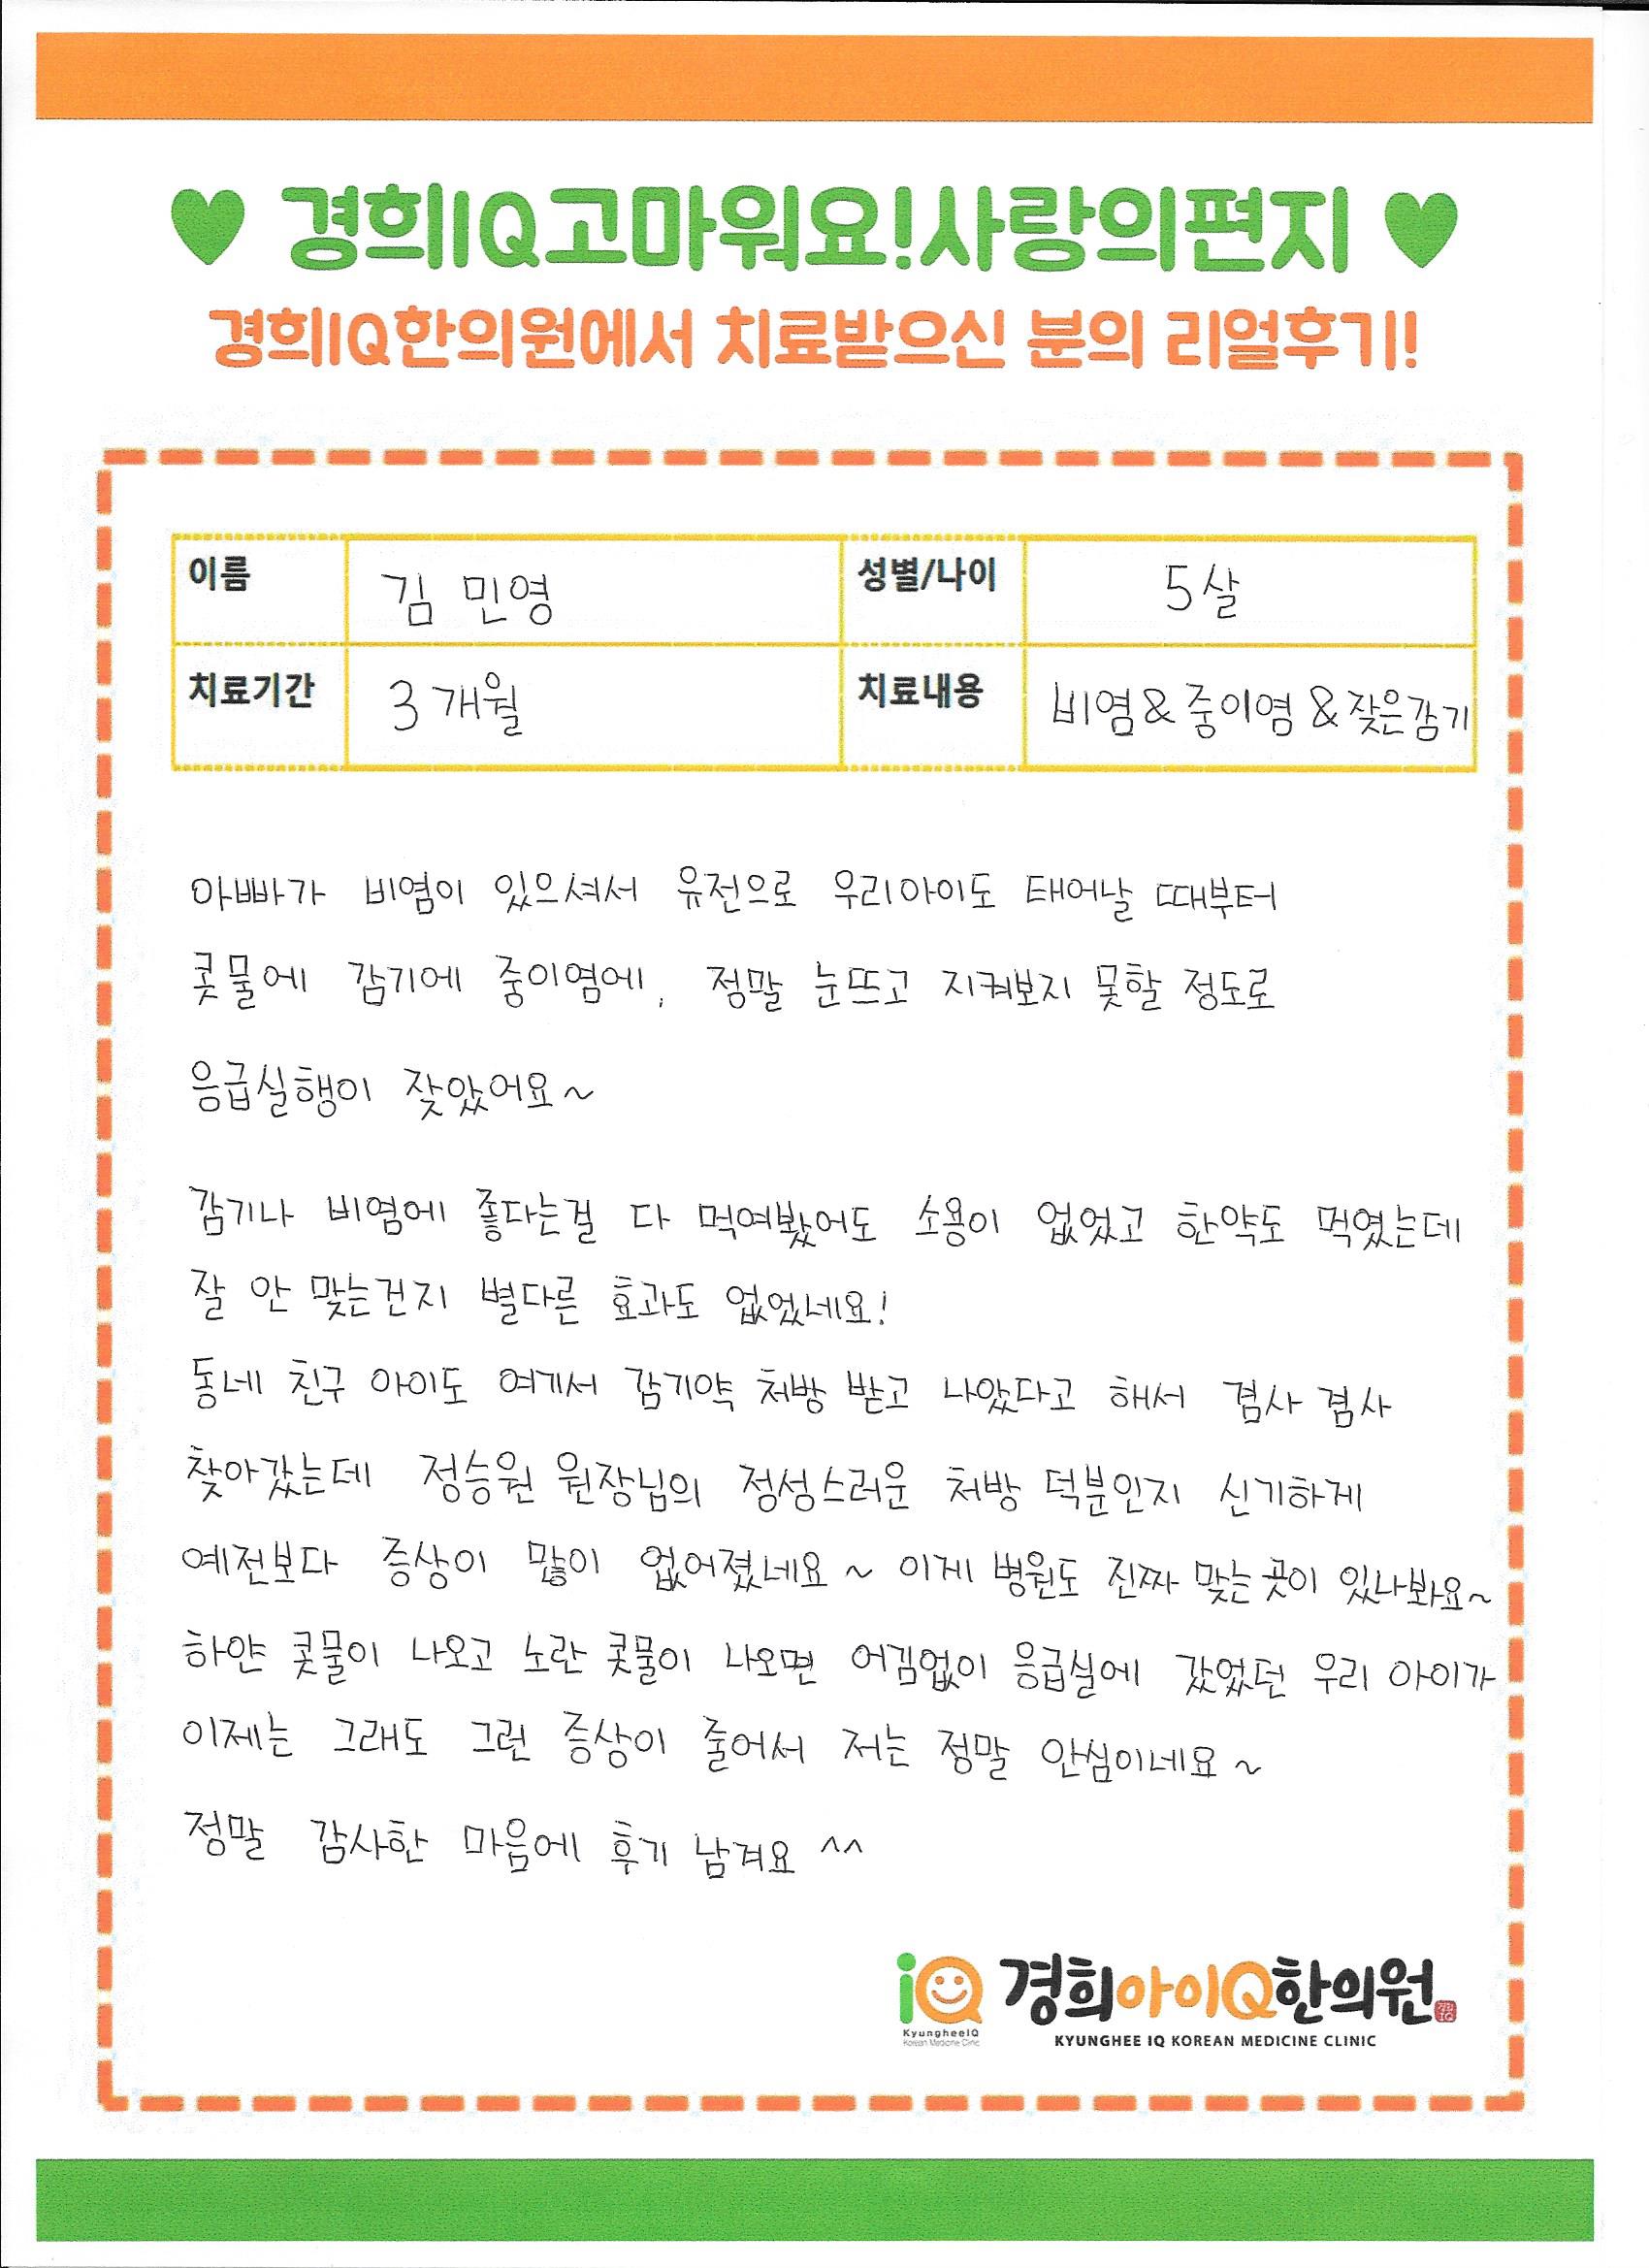 ♥ 경희IQ고마워요!사랑의편지 ♥
경희IQ한의원에서 치료받으신 분의 리얼후기!
이름 김 민영 성별/나이 5살
치료기간 3개월 치료내용 비염&중이염&잦은감기
아빠가 비염이 있으셔서 유전으로 우리아이도 태어날 때부터
콧물에 감기에 중이염에, 정말 눈뜨고 지켜보지 못할 정도로
응급실행이 잦았어요~
감기나 비염에 좋다는걸 다 먹여봤어도 소용이 없었고 한약도 먹였는데
잘 안 맞는건지 별다른 효과도 없었네요!
동네 친구 아이도 여기서 감기약 처방 받고 나았다고 해서 겸사 겸사
찾아갔는데 정승원 원장님의 정성스러운 처방 덕분인지 신기하게
예전보다 증상이 많이 없어졌네요~ 이게 병원도 진짜 맞는 곳이 있나봐요~
하얀 콧물이 나오고 노란 콧물이 나오면 어김없이 응급실에 갔었던 우리 아이가
이제는 그래도 그런 증상이 줄어서 저는 정말 안심이네요~
정말 감사한 마음에 후기 남겨요 ^^
iQ 경희아이Q한의원
KyungheeIQ
Korean Medicine Clinic
KYUNGHEE IQ KOREAN MEDICINE CLINIC